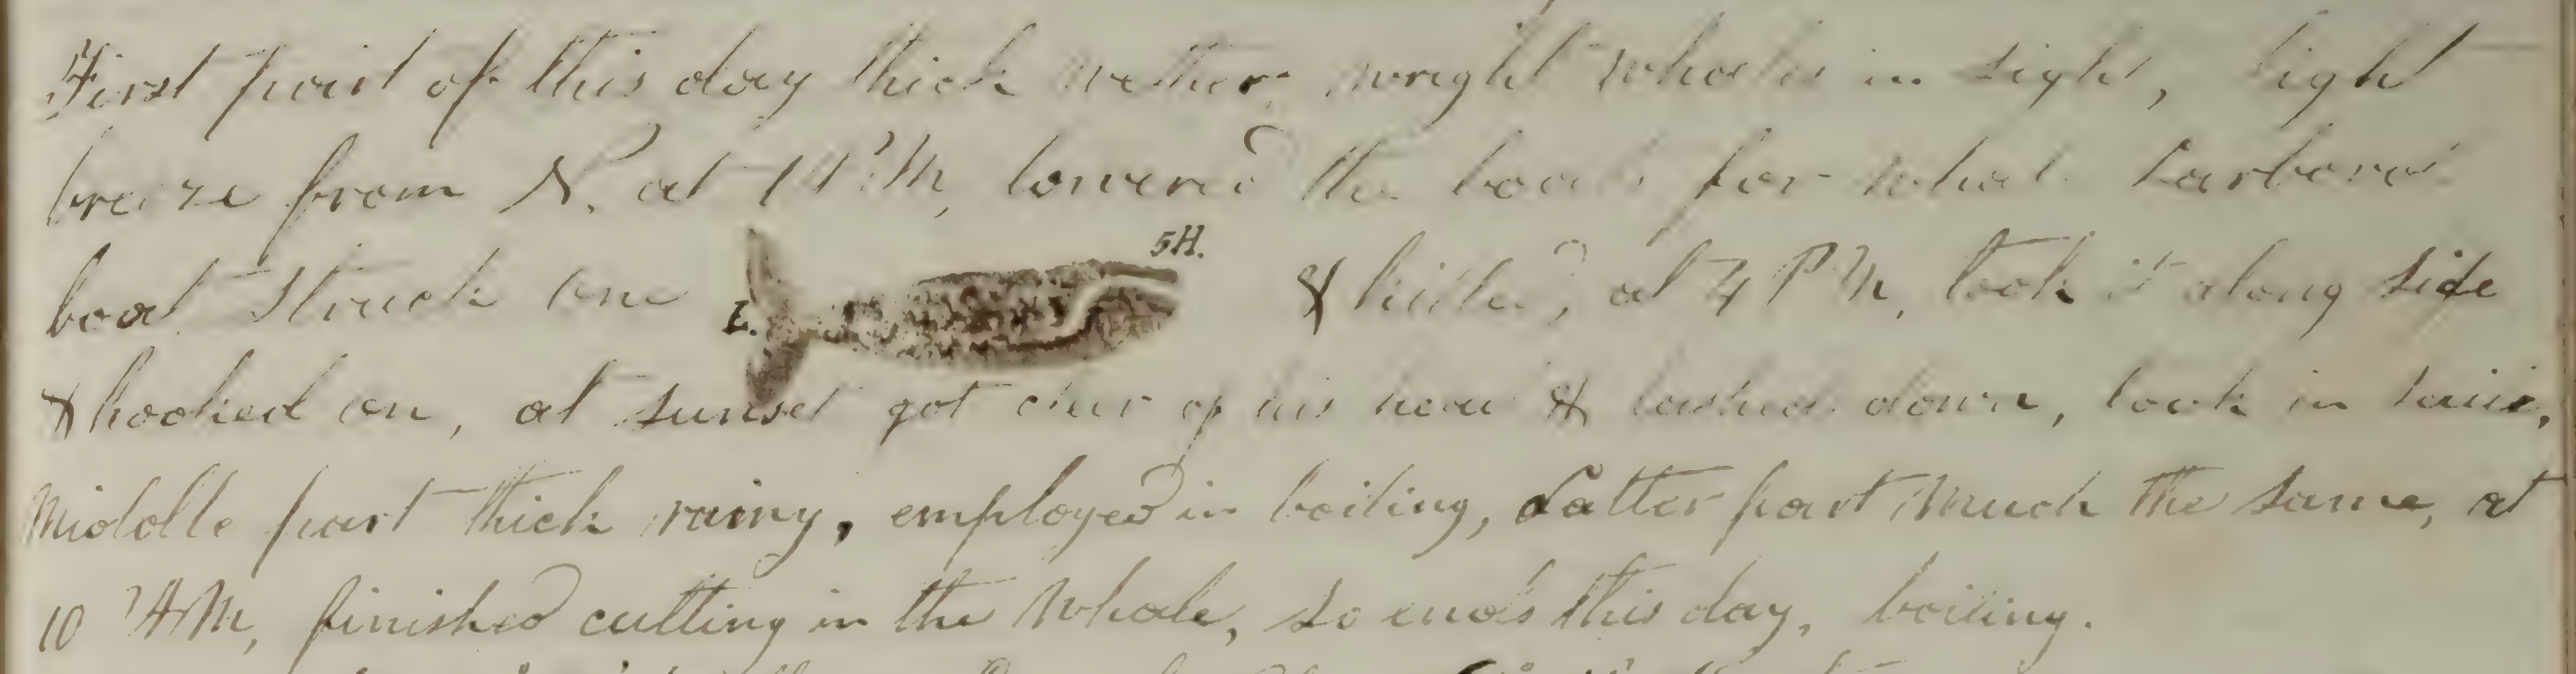 First part of this day thick wether, wright whales in sight, light
breeze from N. at 1 P.M, lowered the boats for whal Larbord
boat struck one L. 5H. & killed, at 4 PM, took it along side
& hooked on, at sunset got clear of his head & lashed down, took in sail,
Middle part thick rainy, employed in boiling, Latter part Much the same, at
10 AM, finished cutting in the Whale, So ends this day, boiling.